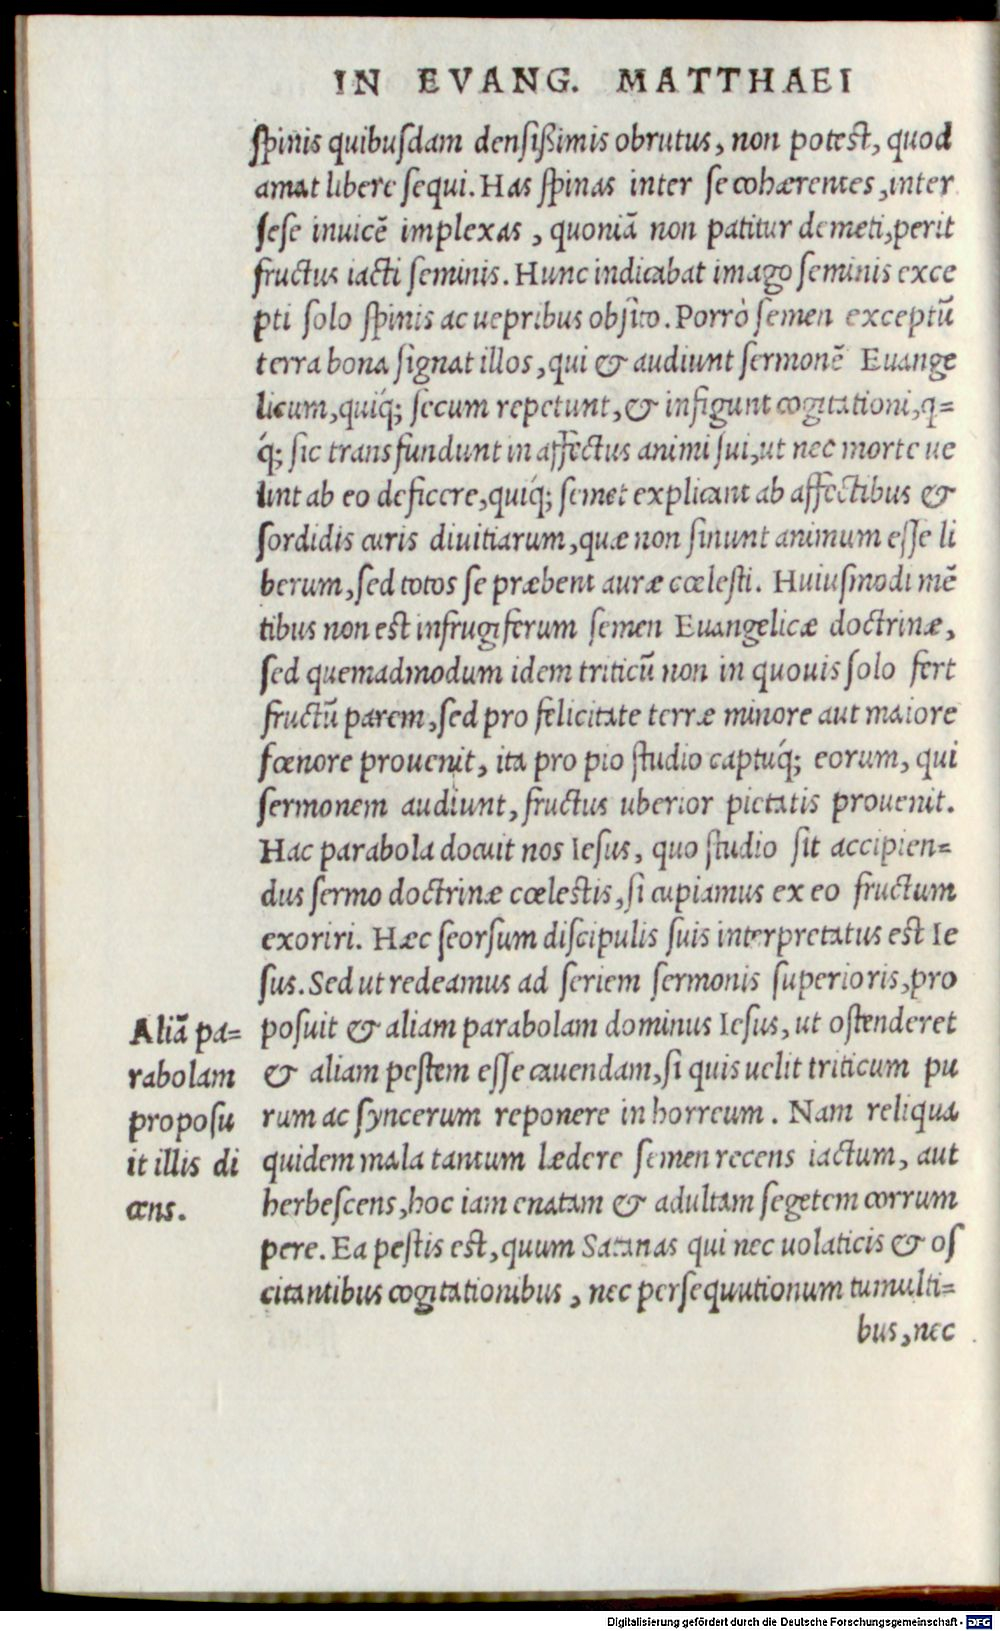 IN EVANG. MATTHAEI
ſpinis quibuſdam denſißimis obrutus, non poteſt, quod
amat libere ſequi. Has ſpinas inter ſe cohærentes, inter
ſeſe inuicē implexas, quoniā non patitur demeti, perit
fructus iacti ſeminis. Hunc indicabat imago ſeminis exce
pti ſolo ſpinis ac uepribus obſito. Porrò ſemen exceptū
terra bona ſignat illos, qui & audiunt ſermonē Euange
licum, quiq́; ſecum repetunt, & infigunt cogitationi, q=
q́; ſic transfundunt in affectus animi ſui, ut nec morte ue
lint ab eo deficere, quiq́; ſemet explicant ab affectibus &
ſordidis curis diuitiarum, quæ non ſinunt animum eſſe li
berum, ſed totos ſe præbent auræ cœleſti. Huiuſmodi mē
tibus non eſt infrugiferum ſemen Euangelicæ doctrinæ,
ſed quemadmodum idem triticū non in quouis ſolo fert
fructū parem, ſed pro felicitate terræ minore aut maiore
fœnore prouenit, ita pro pio ſtudio captuq́; eorum, qui
ſermonem audiunt, fructus uberior pietatis prouenit.
Hac parabola docuit nos Ieſus, quo ſtudio ſit accipien=
dus ſermo doctrinæ cœleſtis, ſi cupiamus ex eo fructum
exoriri. Hæc ſeorſum diſcipulis ſuis interpretatus eſt Ie
ſus. Sed ut redeamus ad ſeriem ſermonis ſuperioris, pro
poſuit & aliam parabolam dominus Ieſus, ut oſtenderet
& aliam peſtem eſſe cauendam, ſi quis uelit triticum pu
rum ac ſyncerum reponere in horreum. Nam reliqua
quidem mala tantum lædere ſemen recens iactum, aut
herbeſcens, hoc iam enatam & adultam ſegetem corrum
pere. Ea peſtis eſt, quum Satanas qui nec uolaticis & oſ
citantibus cogitationibus, nec perſequutionum tumulti=
bus, nec
Aliā pa=
rabolam
propoſu
it illis di
cens.
Digitalisierung gefördert durch die Deutsche Forschungsgemeinschaft - DFG